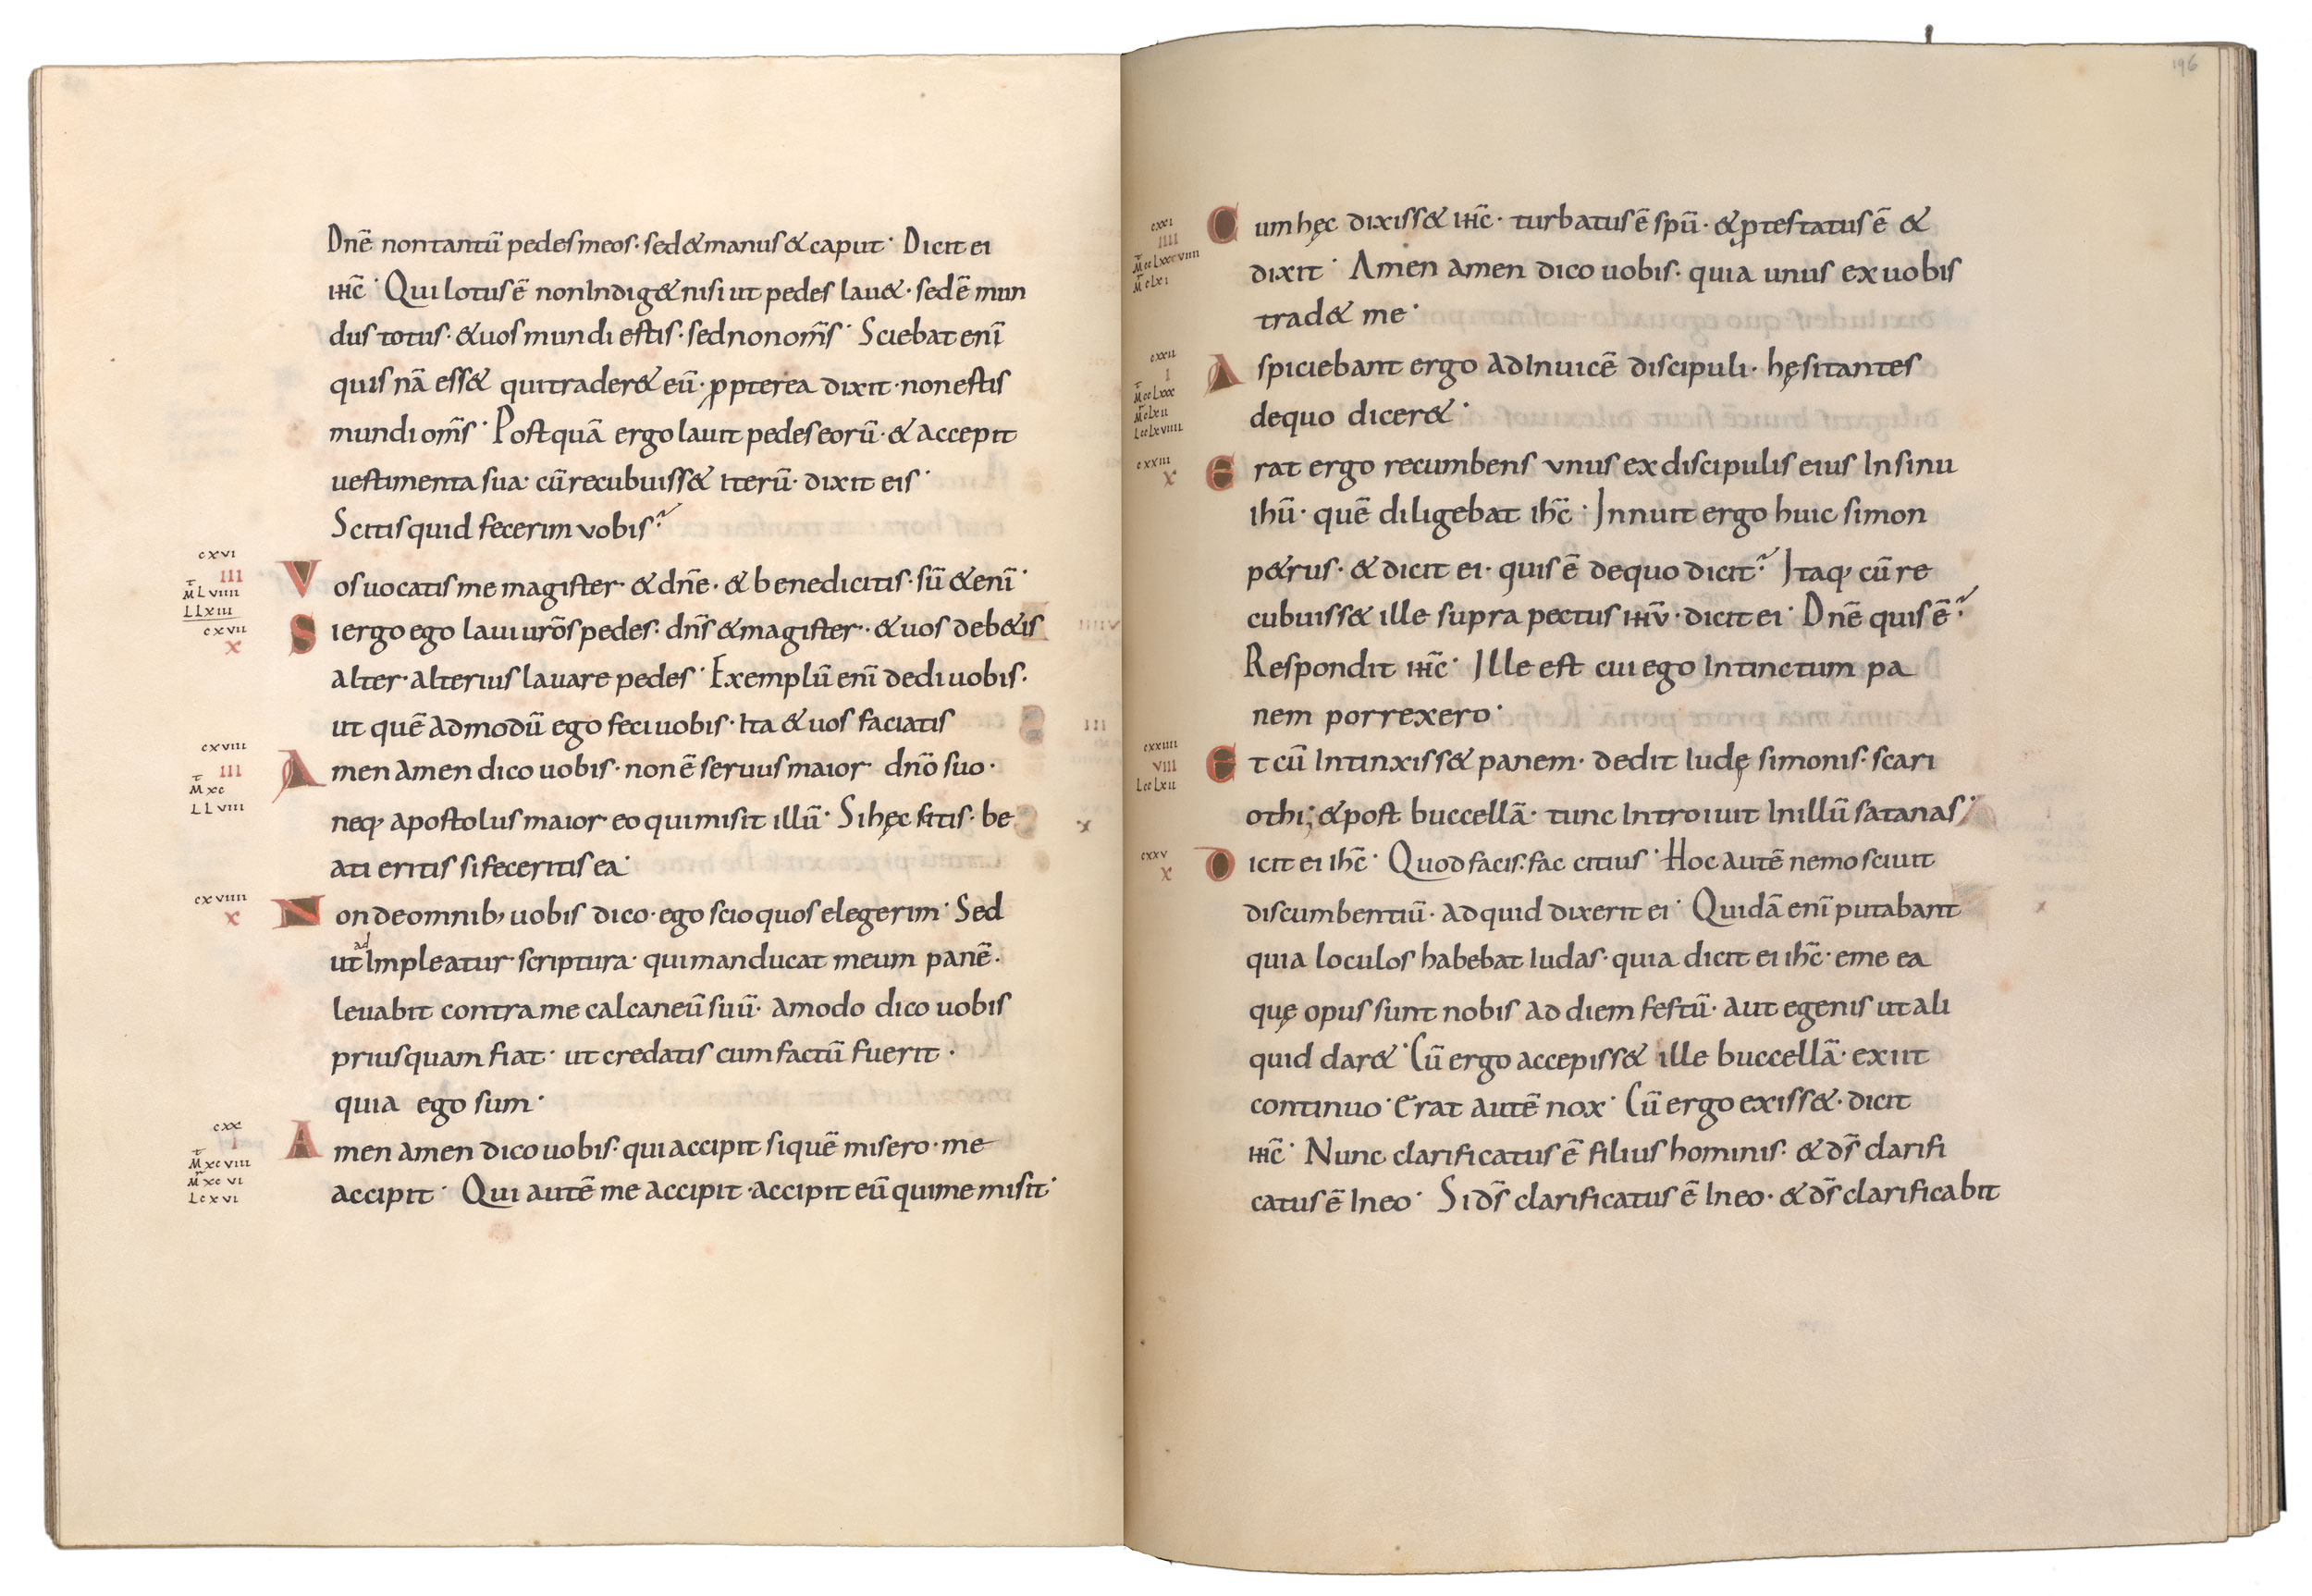 Dnē non tantū pedes meos· sed & manus & caput· Dicit ei
ihc̄· Qui lotus ē non Indig& nisi ut pedes lau&· sed ē mun
dus totus· & uos mundi estis· sed non om̄s· Sciebat enī
quis nā ess& qui trader& eū· ꝓpterea dixit· non estis
mundi om̄s· Postquā ergo lauit pedes eorū· & accepit
uestimenta sua· cū recubuiss& iterū· dixit eis·
Scitis quid fecerim vobis?
cxvi
III
M Lviiii
L Lxiii
Vos uocatis me magister· & dnē· & benedicitis· sū & enī·
cxvii
x
Si ergo ego laui ur̄os pedes· dn̄s & magister·· & uos deb&is
alter· alterius lauare pedes· Exemplū enī dedi uobis·
ut quē admodū ego feci uobis· Ita & uos faciatis
cxviii
III
M xc
L Lviii
Amen amen dico uobis· non ē seruus maior dn̄o suo·
neq; apostolus maior eo qui misit illū· Si hęc sitis· be
ati eritis si feceritis ea·
cxviiii
x
Non de omnib; uobis dico· ego scio quos elegerim· Sed
ad
ut Impleatur scriptura· qui manducat meum panē·
leuabit contra me calcaneū suū· amodo dico uobis
priusquam fiat· ut credatis cum factū fuerit·
quia ego sum·
cxx
I
M xcviii
M xcvi
L cxvi
Amen amen dico uobis· qui accipit si quē misero· me
accipit· Qui autē me accipit· accipit eū qui me misit·
196
cxxi
IIII
M ccLxxxviiii
M cLxi
Cum hęc dixiss& ihc̄· turbatus ē spū· & ꝓtestatus ē &
dixit· Amen amen dico uobis· quia unus ex uobis
trad& me·
cxxii
I
M ccLxxx
M cLxii
L ccLxviiii
Aspiciebant ergo adInuicē discipuli· hęsitantes
de quo dicer&·
cxxiii
x
Erat ergo recumbens vnus ex discipulis eius In sinu
ihū· quē diligebat ihc̄· Innuit ergo huic simon
p&rus· & dicit ei· quis ē de quo dicit? Itaq; cū re
cubuiss& ille supra pectus ihū· dicit ei· Dnē quis ē?
Respondit ihc̄· Ille est cui ego Intinctum pa
nem porrexero·
cxxiiii
VIII
L ccLxii
Et cū Intinxiss& panem· dedit Iudę simonis· scari
othi; & post buccellā· tunc Introiuit In illū satanas·
cxxv
x
Dicit ei ihc̄· Quod facis· fac citius· Hoc autē nemo sciuit
discumbentiū· ad quid dixerit ei· Quidā enī putabant
quia loculos habebat Iudas· quia dicit ei ihc̄· eme ea
quę opus sunt nobis ad diem festū· aut egenis ut ali
quid dar&· Cū ergo accepiss& ille buccellā· exiit
continuo· Erat autē nox· Cū ergo exiss&· dicit
ihc̄· Nunc clarificatus ē filius hominis· & ds̄ clarifi
catus ē In eo· Si ds̄ clarificatus ē In eo· & ds̄ clarificabit